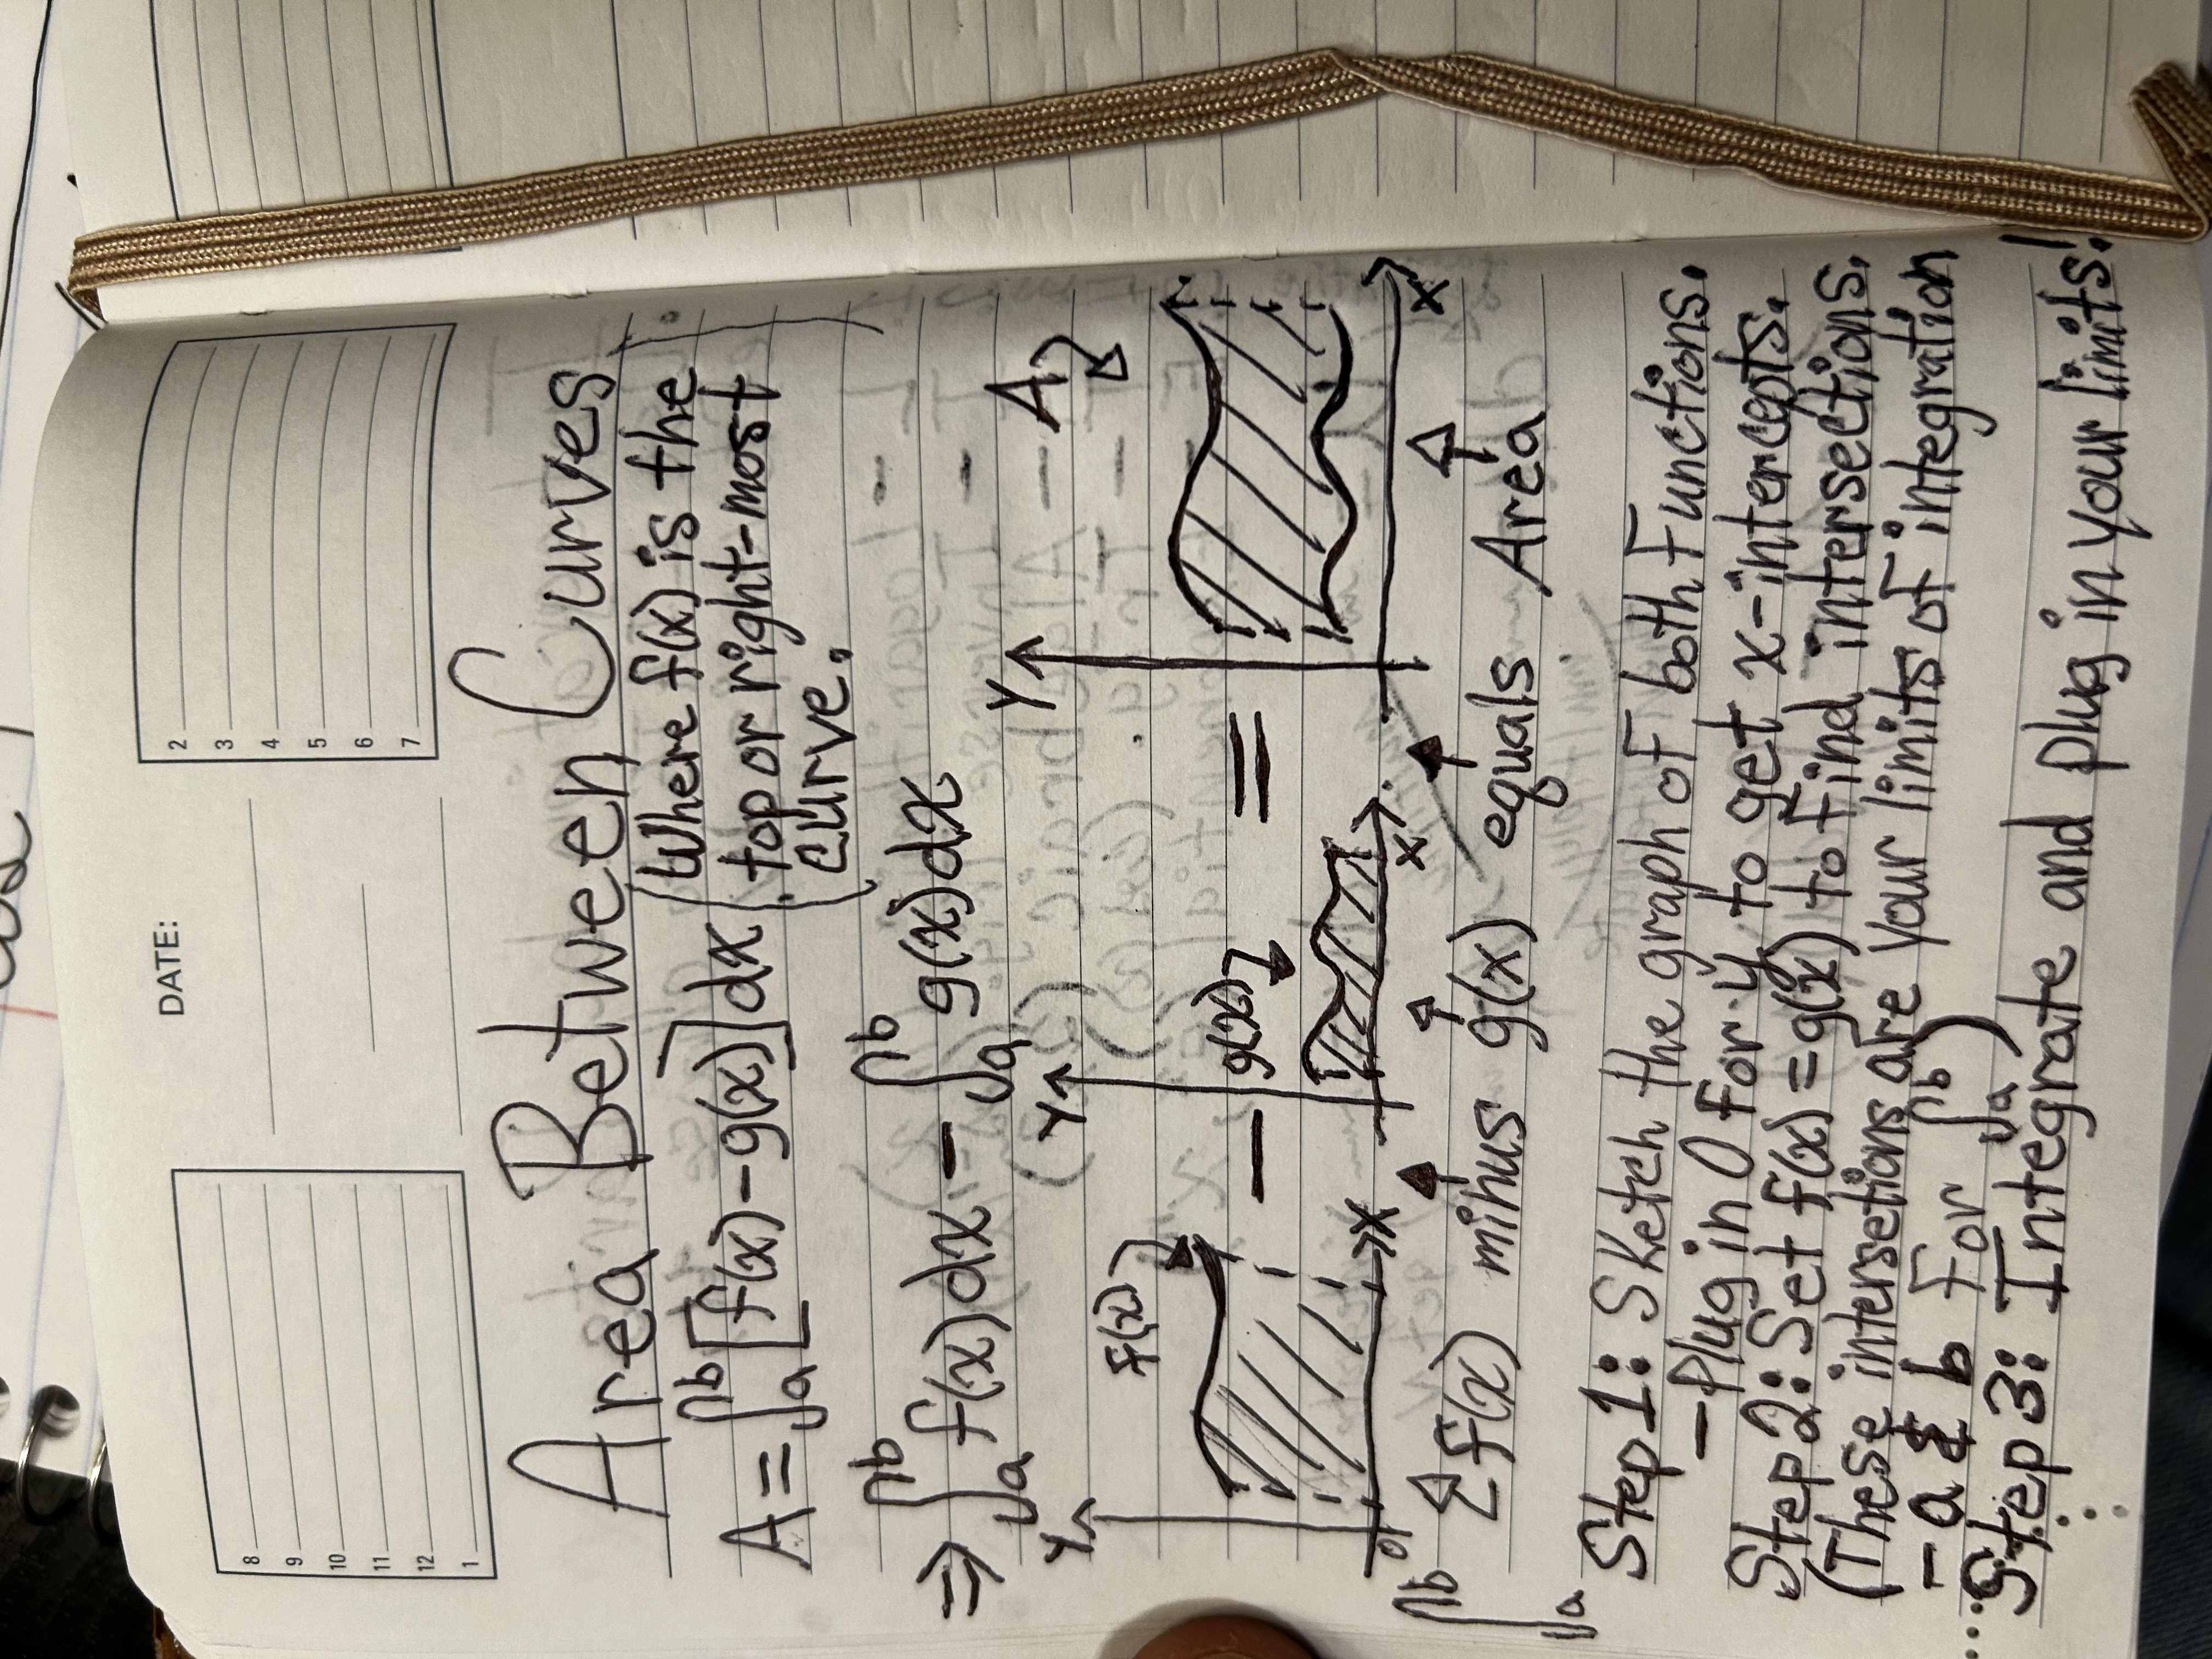 DATE:
8
9
10
11
12
1
2
3
4
5
6
7
Area Between Curves
A = ∫ₐᵇ [f(x) - g(x)] dx
(Where f(x) is the
top or right-most
curve.)
⇒ ∫ₐᵇ f(x) dx - ∫ₐᵇ g(x) dx
Y
f(x)
0
X
-
Y
g(x)
X
=
Y
A
X
∫ₐᵇ f(x) minus g(x) equals Area
Step 1: Sketch the graph of both Functions.
- Plug in 0 For y to get x-intercepts.
Step 2: Set f(x) = g(x) to Find intersections.
(These intersetions are your limits of integration
- a & b For ∫ₐᵇ)
Step 3: Integrate and plug in your limits!